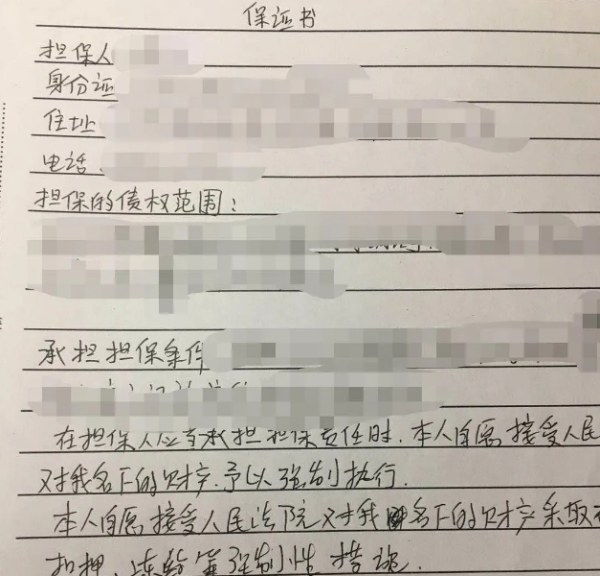 保证书
担保人
身份证
住址
电话
担保的债权范围：
承担担保条件
在担保人应当承担担保责任时，本人自愿接受人民
对我名下的财产，予以强制执行．
本人自愿接受人民法院对我名下的财产采取
扣押、冻结等强制性措施